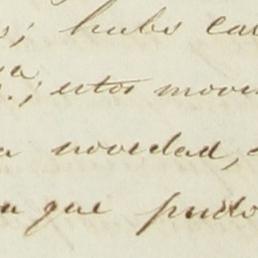 ; hubo ca
a.; estos move
a novedad,
a que pudo